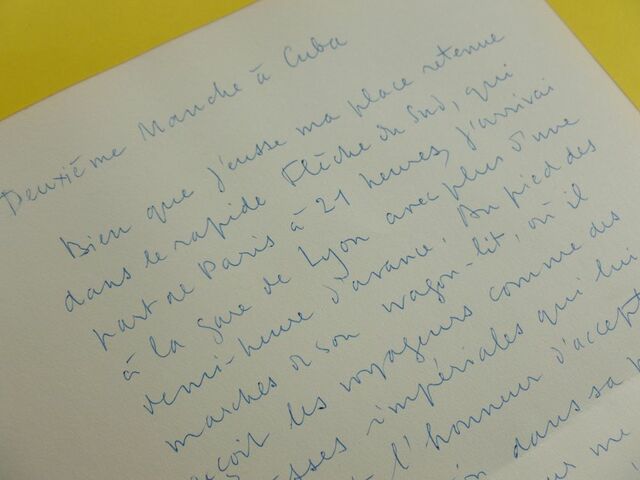 Deuxième Manche à Cuba
Bien que j'eusse ma place retenue
dans le rapide Flèche du Sud, qui
part de Paris à 21 heures, j'arrivai
à la gare de Lyon avec plus d'une
demi-heure d'avance. Au pied des
marches de son wagon-lit, où il
les voyageurs comme des
impériales qui lui
l'honneur d'accept
dans sa
me